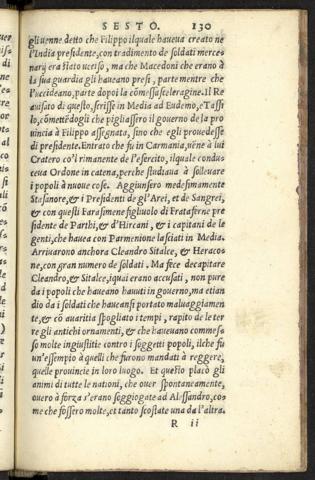 SESTO. 130
gli uenne detto che Filippo ilquale haueua creato ne
l'India presidente, con tradimento de soldati merce-
narij era stato ucciso, ma che Macedoni che erano à
la sua guardia gli haueano presi, parte mentre che
l'uccideano, parte dopoi la cōmessa sceleragine. Il Re
auisato di questo, scrisse in Media ad Eudemo, e Tassi
lo, cōmettēdogli che pigliassero il gouerno de la pro
uincia à Filippo assegnata, sino che egli prouedesse
di presidente. Entrato che fu in Carmania, uēne à lui
Cratero co'l rimanente de l'esercito, ilquale condu-
ceua Ordone in catena, perche studiaua à solleuare
i popoli à nuoue cose. Aggiunsero medesimamente
Stasanore, & i Presidenti de gl'Arei, et de Sangrei,
& con questi Farasimene figliuolo di Frataferne pre
sidente de Parthi, & d'Hircani, & i capitani de le
genti, che hauea con Parmenione lasciati in Media.
Arriuarono anchora Cleandro Sitalce, & Heraco-
ne, con gran numero de soldati. Ma fece decapitare
Cleandro, & Sitalce, iquai erano accusati, non pure
da i popoli che haueano hauuti in gouerno, ma etian
dio da i soldati che haueansi portato maluaggiamen-
te, & cō auaritia spogliato i tempi, rapito de le ter
re gli antichi ornamenti, & che haueuano commes-
so molte ingiustitie contro i soggetti popoli, ilche fu
un'essempio à quelli che furono mandati à reggere,
quelle prouincie in loro luogo. Et questo placò gli
animi di tutte le nationi, che ouer spontaneamente,
ouero à forza s'erano soggiogate ad Alessandro, co-
me che fossero molte, et tanto scostate una da l'altra.
R ii